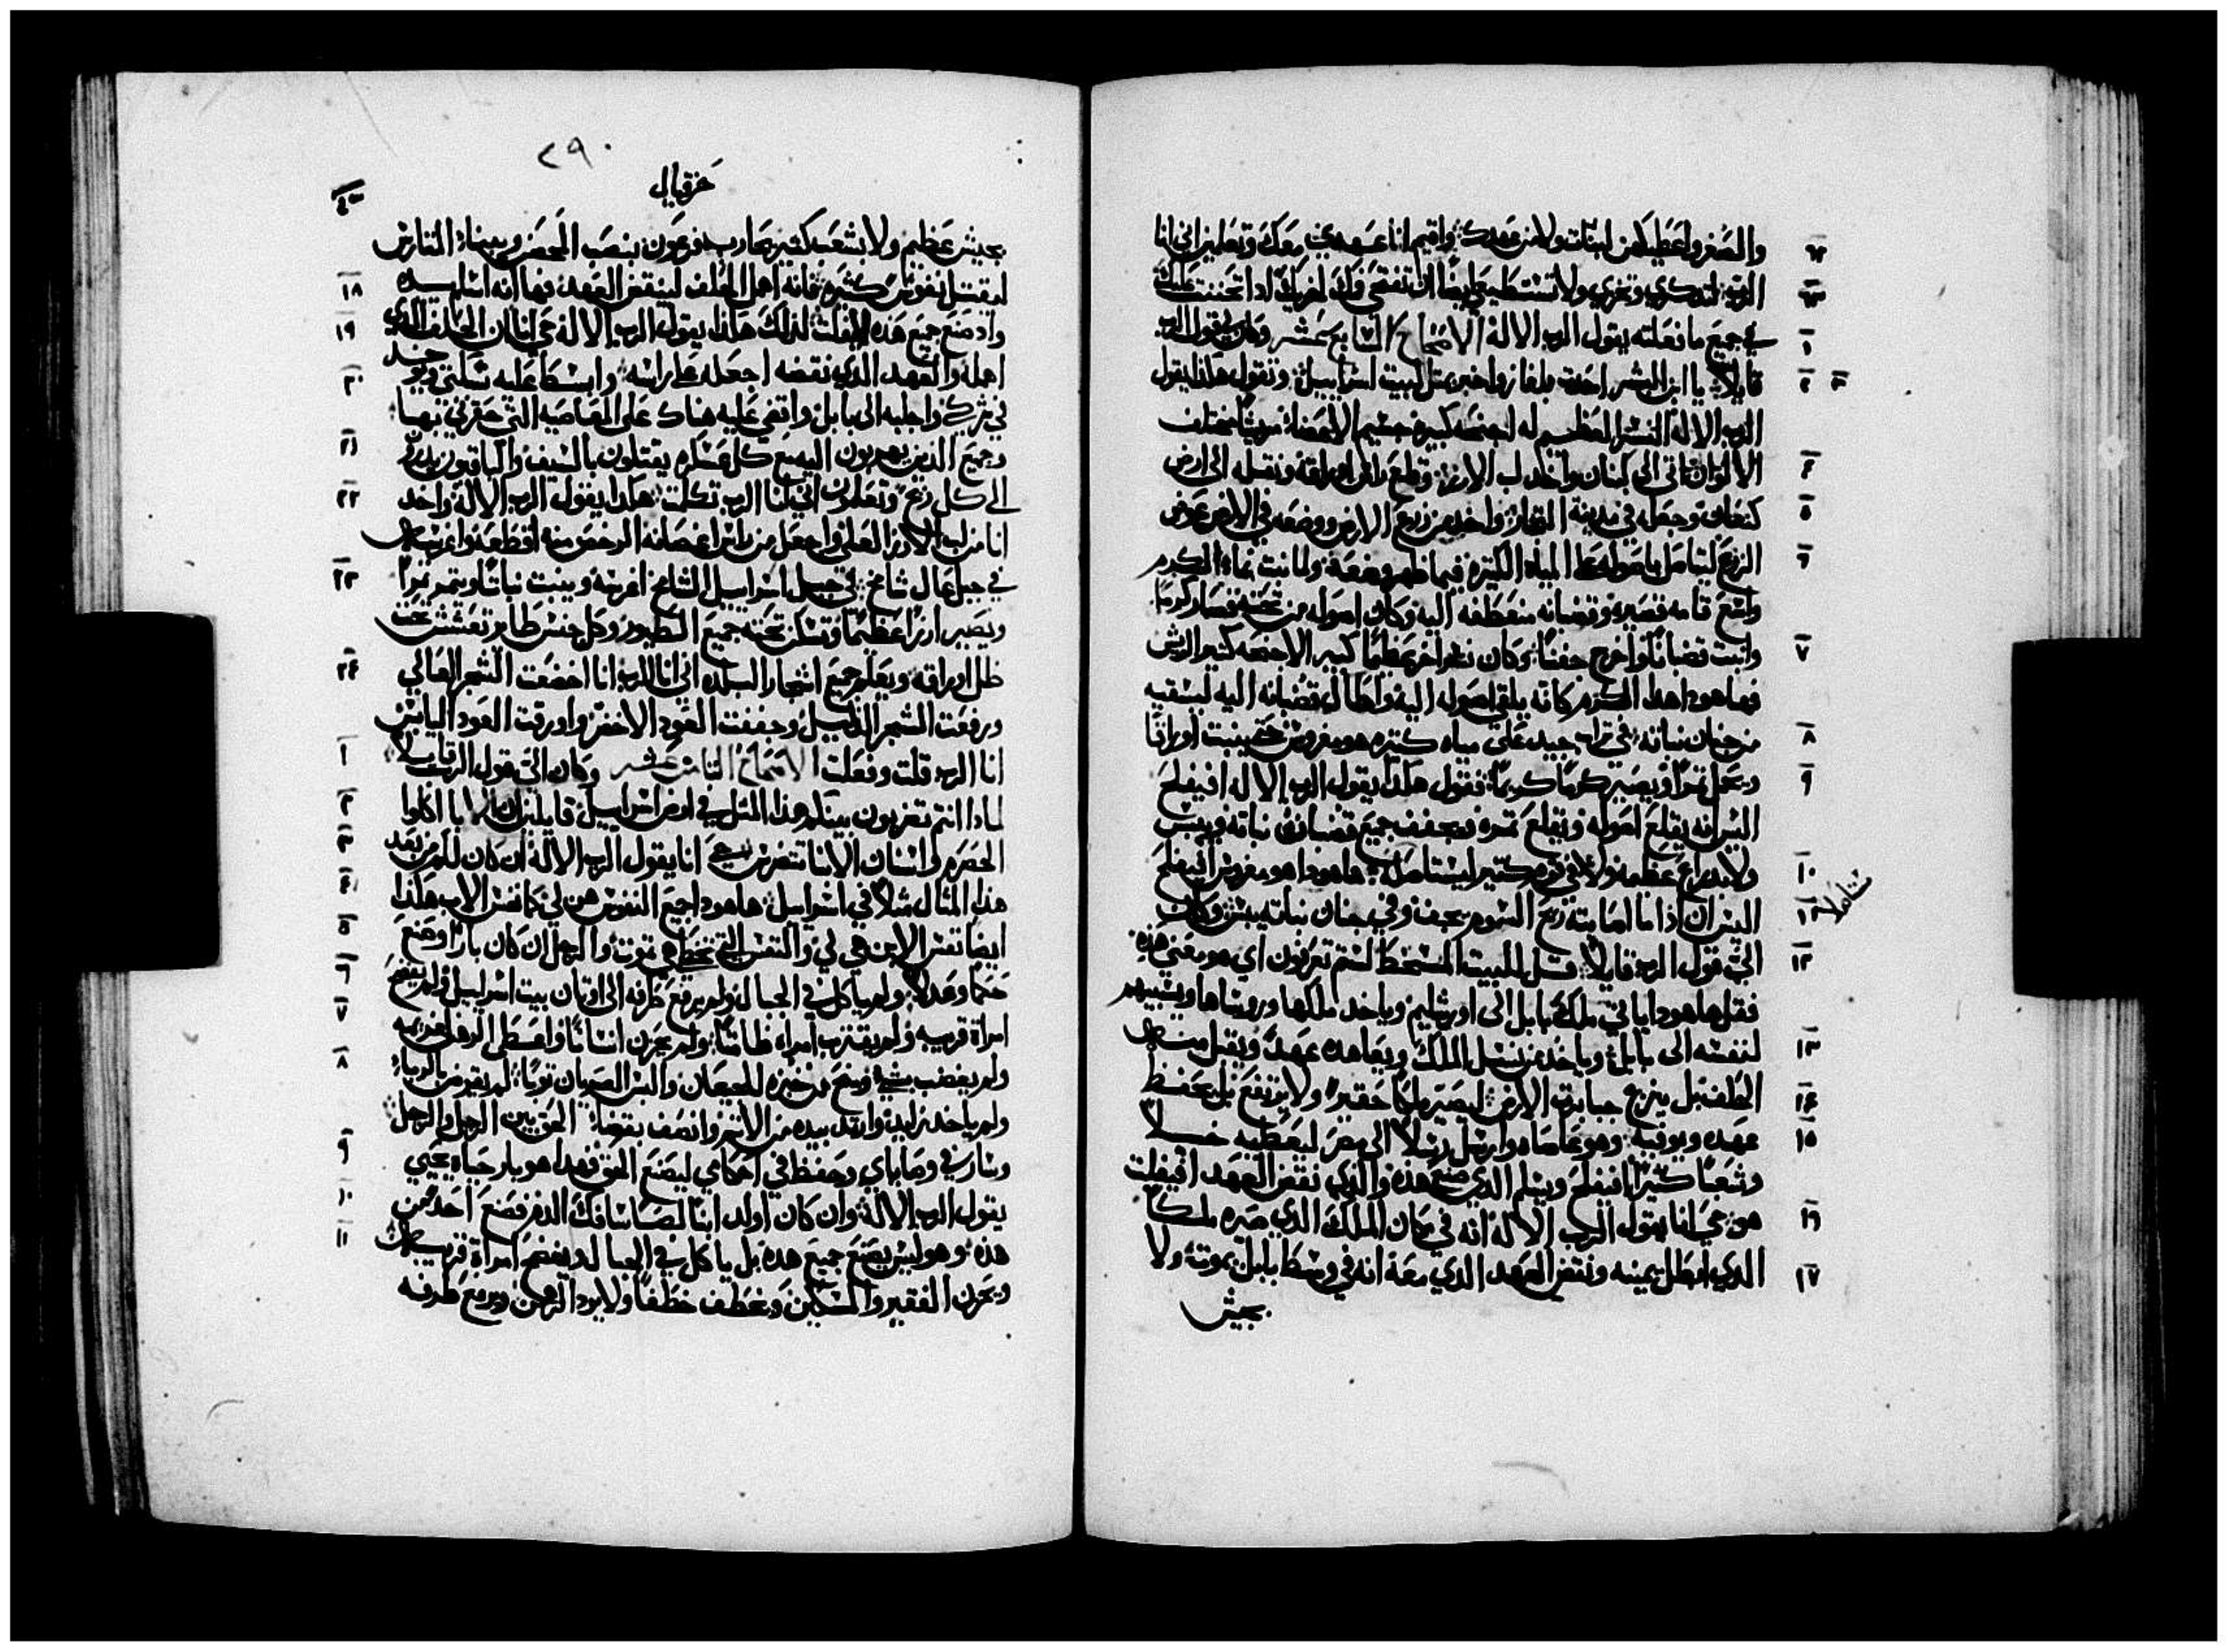 والصغر واعطيك من لبنات ولا من عهدك واقيم انا عهدي معك وتعلمين اني انا
الرب لتدكري وتخزي ولا تستطيعي ايضا ان تفتحي فاك لخزيك ادا تحننت عليك
في جميع ما فعلته يقول الرب الاله الاصحاح السابع عشر وكان قول الرب
قايلا يا ابن البشر احكي بلغاز واخبر بمثل لبيت اسراييل وتقول هكذا يقول
الرب الاله النسر العظيم له اجنحه كبيره جسيم الاعضاء مريشا مختلف
الالوان اتى الى لبنان واخد لب الارز وقطع راس اوراقه ونقله الى ارض
كنعان وجعله في مدينة التجار واخد من زرع الارض ووضعه في الارض عوض
الزرع ليتاصل باصوله على المياه الكتيره فيما ظهر وضعه ولما نبت نماء الكرم
واتسع قامه قصيره وقضبانه منعطفه اليه وكان اصوله من تحته فصار كرما
وانبت قضبانا واخرج جفنا وكان نسر اخر عظيما كبير الاجنحه كتير الريش
فها هودا هدا الكرم كانه يلقي اصوله اليه واطال قضبانه اليه ليسقيه
من جنان نباته في تراب جيد على مياه كتيره هو مغروس حتى ينبت اوراقا
ويحمل تمرا ويصير كرما كريما فقول هكدا يقول الرب الاله افيفلح
اليس انه يقلع اصوله ويقلع تمره ويجفف جميع قضبان نباته وييبس
ولا بدراع عظيمه ولا في قوم كتير ليستاصل ها هودا هو مغروس افيفلح
اليس ان ادا ما اصابته ريح السموم يجف وفي جنان نباته ييبس وكان
الي قول الرب قايلا قل للبيت المسخط لستم تعرفون اي هو معنى هده
فقل ها هودا ياتي ملك بابل الى اورشليم وياخد ملكها وروساها ويسبيهم
لنفسه الى بابل وياخد من نسل الملك ويعاهده عهدا ويقبل منه
الحلف بل ينزع جبابرة الارض ليصير ملكا حقيرا ولا يرتفع بل يحفظ
عهده ويوفيه وهو عاصاه وارسل رسلا الى مصر ليعطيه خيلا
وشعبا كتيرا افيفلح ويسلم الدي صنع هده والدي نقض العهد افيفلت
هو حي انا يقول الرب الاله انه في مكان الملك الدي صيره ملكا
الدي ابطل يمينه ونقض العهد الدي معه انه في وسط بابل يموت ولا
بجيش
٢٩٠
حزقيال
بجيش عظيم ولا بشعب كتير يحارب فرعون بنصب المحفر وببناء المتارس
ليقتل نفوس كتيره فانه اهمل الحلف لينقض العهد فها انه اسلم يده
واد صنع جميع هده لا يفلت لدلك هكدا يقول الرب الاله حي انا ان الحلف الدي
اهله والعهد الدي نقضه اجعله على راسه وابسط عليه شبكتي ويوخد
في شركي واجلبه الى بابل واقضي عليه هناك على المعاصيه التي حقرني بها
وجميع الدين يهربون اليه مع كل عسكره يقتلون بالسيف والباقيون يدرون
الى كل ريح وتعلمون اني انا الرب تكلمت هكدا يقول الرب الاله واخد
انا من لب الارز العالي واجعل من راس اغصانه الرخص منه اقطعه واغرسه
في جبل عال شامخ في جبل اسراييل الشامخ اغرسه وينبت نباتا ويتمر تمرا
ويصير ارزا عظيما وتسكن تحته جميع الطيور وكل جنس طاير تعشش تحت
ظل اوراقه ويعلم جميع اشجار البلده اني انا الرب انا اخضعت الشجر العالي
ورفعت الشجر الدليل وجففت العود الاخضر واورقت العود اليابس
انا الرب قلت وفعلت الاصحاح التامن عشر وكان الي قول الرب قايلا
لمادا انتم تضربون بينكم هدا المتل في ارض اسراييل قايلين الابا اكلوا
الحصرم واسنان الابنا تتضرس حي انا يقول الرب الاله ان كان لكم من بعد
هدا المتال متلا في اسراييل ها هودا جميع النفوس هن لي كما نفس الاب هكدا
ايضا نفس الابن هي لي والنفس التي تخطي هي تموت والرجل ان كان بارا وصنع
حكما وعدلا ولم ياكل في الجبال ولم يرفع طرفه الى اوتان بيت اسراييل ولم يفضح
امراة قريبه ولم يقترب امراه طامتا ولم يحزن انسانا واعطى الرهن لغريمه
ولم يغصب شيا ومنح من خبزه للجيعان والبس العريان توبا لم يقرض بالرباء
ولم ياخد زايدا وارتد بيده من الاتم وانصف بقضاء الحق بين الرجل والرجل
وسار في وصاياي وحفظ في احكامي ليصنع الحق فهدا هو بار حياه يحيي
يقول الرب الاله وان كان اولد ابنا لصا سافك الدم فصنع احد من
هده وهو ليس يصنع جميع هده بل ياكل في الجبال ويفضح امراة قريبه
ويحزن الفقير والمسكين ويخطف خطفا ولا يرد الرهن ويرفع طرفه